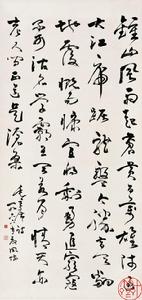 鍾山風雨起蒼黃百萬雄師過
大江虎踞龍盤今勝昔天翻
地覆慨而慷宜將剩勇追窮寇
不可沽名學霸王天若有情天亦
老人間正道是滄桑
毛主席詩